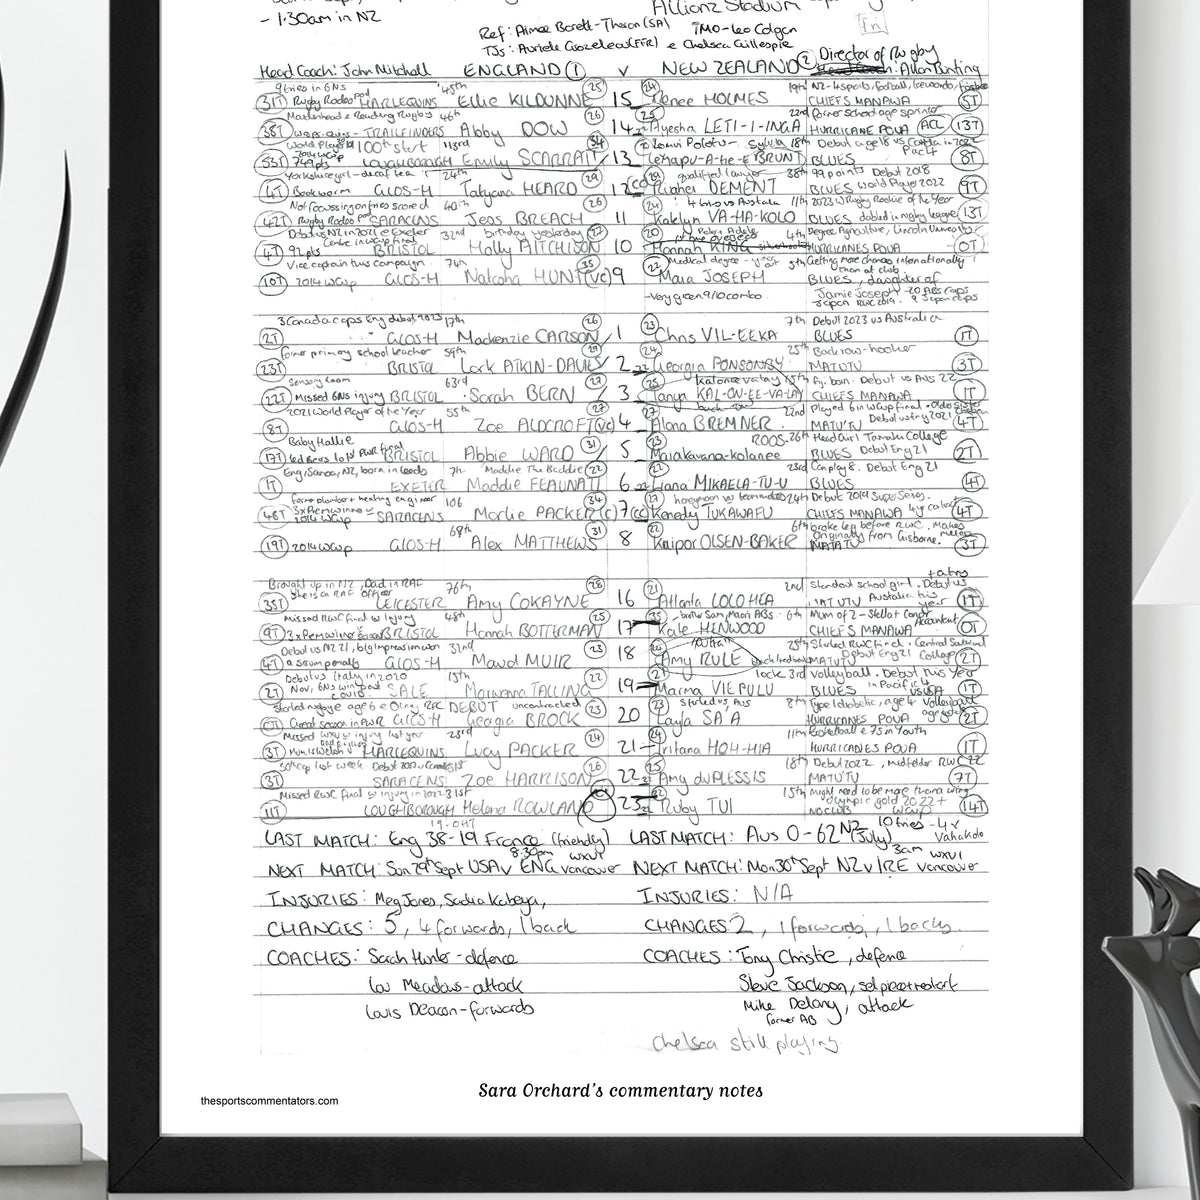 - 1.30am in NZ
Allianz Stadium
Ref: Aimee Barett-Theron (SA) TMO-Leo Colgan
TJs: & Chelsea Gillespie
Head Coach: John Mitchell ENGLAND 1 v NEW ZEALAND 2 Director of Rugby Allan Bunting
9 tries in 6NS 45th 25 24 19th NZ - 4 sports, football,
31T Rugby Rodeo pod HARLEQUINS Ellie KILDUNNE 15 Renee HOLMES CHIEFS MANAWA 5T
Maidenhead & Reading Rugby 46th 26 25 22nd former school age sprinter
38T Wasps-Quins - TRAILFINDERS Abby DOW 14 Ayesha LETI-I-INGA HURRICANE POUA ACL 13T
World Player 100th start 113rd 34 Sylvia 18th Debut age 18 vs
53T 749pts LOUGHBOROUGH Emily SCARRATT 13 BRUNT BLUES Pac 4 8T
Yorkshire girl - decaf tea 24th 29 qualified lawyer 38th 99 points Debut 2018
4T Bookworm GLOS-H Tatyana HEARD 12 Ruahei DEMENT BLUES World Player 2022 9T
Not focussing on tries scored 40th 26 24 11th 2023 W Rugby Rookie of the Year
42T Rugby Rodeo pod SARACENS Jess BREACH 11 Katelyn VA-HA-KOLO BLUES dabbled in rugby league 13T
Debut vs NZ in 2021 @ Exeter 32nd birthday yesterday 27 20 4th Degree Agriculture, Lincoln University
4T 92pts BRISTOL Holly AITCHISON 10 Hannah KING HURRICANES POUA 0T
Vice captain this campaign 74th 35 22 Medical degree 5th Getting more chances internationally than at club
10T 2014 WCup GLOS-H Natasha HUNT (VC) 9 Maia JOSEPH BLUES, daughter of
- Very green 9/10 combo Jamie Joseph - 20 ABs caps
Japan RWC 2019. 9 Japan caps
3 Canada caps Eng debut 2023 17th 26 23 7th Debut 2023 vs Australia
2T GLOS-H Mackenzie CARSON 1 Chris VIL-EEKA BLUES 1T
former primary school teacher 59th 29 24 25th Backrow-hooker
23T BRISTOL Lark ATKIN-DAVIES 2 Georgia PONSONBY MATUTU 3T
Sensory room 63rd 27 25 born. Debut vs Aus 22
22T Missed 6Ns injury BRISTOL Sarah BERN 3 Tanya KAL-ON-EE-VA-LAY CHIEFS MANAWA 1T
2021 World Player of the Year 55th 27 27 22nd Played 6 in WCup final
8T GLOS-H Zoe ALDCROFT (VC) 4 Alana BREMNER MATU'TU Debut 2021 4T
Baby Hallie 31 23 ROOS 26th Head Girl Tamaki College
17T led Bears to 1st PWR final BRISTOL Abbie WARD 5 Maiakawana-kolanee BLUES Debut Eng 21 2T
Eng, Samoa, NZ, born in Leeds 7th Maddie The Baddie 22 22 23rd Can play 8. Debut Eng 21
1T EXETER Maddie FEAUNATI 6 Liana MIKAELA-TU-U BLUES 4T
former plumber + heating engineer 106 34 27 24th Debut 2019 Super Series.
48T 3x Prem winner 2014 WCup SARACENS Marlie PACKER (c) 7 (cc) Kenedy TUKAWAFU CHIEFS MANAWA 4T
69th 31 22 6th broke leg before RWC. Makes
19T 2014 WCup GLOS-H Alex MATTHEWS 8 Kaipor OLSEN-BAKER Originally from Gisborne. MATATU 3T
Brought up in NZ, Dad in RAF She is a RAF officer 76th 28 21 2nd Standout school girl. Debut vs
35T LEICESTER Amy COKAYNE 16 Atlanta LOLOHEA MATUTU Australia this year 1T
Missed RWC final w injury 48th 25 35 brother Sam, Maori ABs 6th Mum of 2 -
9T 3x Prem winner BRISTOL Hannah BOTTERMAN 17 Kate HENWOOD CHIEFS MANAWA Accountant 0T
Debut vs NZ 21, big impression won a scrum penalty 32nd 23 25th Started RWC final. Central Southland College
4T GLOS-H Maud MUIR 18 Amy RULE MATUTU Debut Eng 21 2T
Debut vs Italy in 2020 15th 22 21 lock 3rd volleyball. Debut this Year
2T Nov, 6Ns win SALE Morwenna TALLING 19 Marma VIEPULU BLUES in Pacific 4 vs USA 1T
Started rugby age 6 @ Olney RFC DEBUT uncontracted 23 23 started vs Aus 8th Type 1 diabetic, age 4. Volleyball
0T Great season in PWR GLOS-H Georgia BROCK 20 Layla SA'A HURRICANES POUA 2T
Missed injury last year 23rd 24 24 11th Basketball & 7s in Youth
3T Mum is Welsh HARLEQUINS Lucy PACKER 21 Iritana HOH-HIA HURRICANES POUA 1T
50th cap last week Debut 51st 26 25 18th Debut 2022, midfielder RWC 22
3T SARACENS Zoe HARRISON 22 Amy duPLESSIS MATU'TU 7T
Missed RWC final w injury in 2022 31st 32 15th Might need to be more than a wing
11T LOUGHBOROUGH Helena ROWLAND 23 Ruby TUI NO CLUB Olympic gold 2022 + WCup 14T
19-0HT
LAST MATCH: Eng 38-19 France (friendly) LAST MATCH: Aus 0-62 NZ (July) 10 tries - 4x Vahakolo
8.30pm WXV1 3am WXV1
NEXT MATCH: Sun 29th Sept USA v ENG Vancouver NEXT MATCH: Mon 30th Sept NZ v IRE Vancouver
INJURIES: Meg Jones, Sadia Kabeya, INJURIES: N/A
CHANGES: 5, 4 forwards, 1 back CHANGES: 2, 1 forwards, 1 backs.
COACHES: Sarah Hunter - defence COACHES: Tony Christie, defence
Lou Meadows - attack Steve Jackson, set piece + restart
Louis Deacon - forwards Mike Delany, attack
former AB
Chelsea still playing
Sara Orchard's commentary notes
thesportscommentators.com